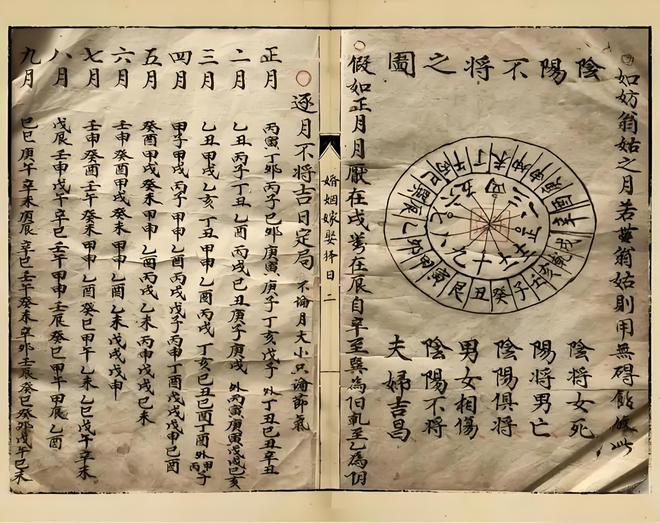 如妨翁姑之月若無翁姑則用無碍能依此
陰陽不將之圖
戌
子癸丑艮寅甲卯乙辰
巳丙午丁未
陰將女死
陽將男亡
陰陽俱將
男女相傷
陰陽不將
夫婦吉昌
假如正月月厭在戌在辰自辛至巽為阳乾至乙為阴
婚姻嫁娶擇日 二
逐月不將吉日定局 不論月大小只論節氣
正月 丙寅 丁卯 丙子 己卯 庚寅 庚子 丁亥 戊子 外丁丑己丑辛丑
二月 乙丑 丙子 丁丑 乙酉 丙戌 己丑 庚子 庚戌 外丙寅庚寅戊戌己亥
三月 乙丑 甲戌 乙亥 丁丑 乙酉 丙戌 丁亥 己丑 己酉 丁酉 外甲子丙子
四月 甲子 甲戌 丙子 甲申 乙酉 丙戌 戊子 丙申 丁酉 戊戌 戊申 己酉
五月 癸酉 甲戌 癸未 甲申 乙酉 丙戌 乙未 丙申 戊戌 戊申 己未
六月 壬申 癸酉 甲戌 壬午 癸未 甲申 乙酉 甲午 乙未 戊戌 戊申
七月 壬申 癸酉 壬午 癸未 甲申 乙酉 癸巳 甲午 乙未 乙巳 戊午 辛未
八月 戊辰 壬申 戊午 辛巳 壬午 甲申 壬辰 癸巳 甲午 甲辰 乙酉
九月 己巳 庚午 辛未 庚辰 辛巳 壬午 癸未 辛卯 壬辰 癸巳 癸卯 戊午 己未